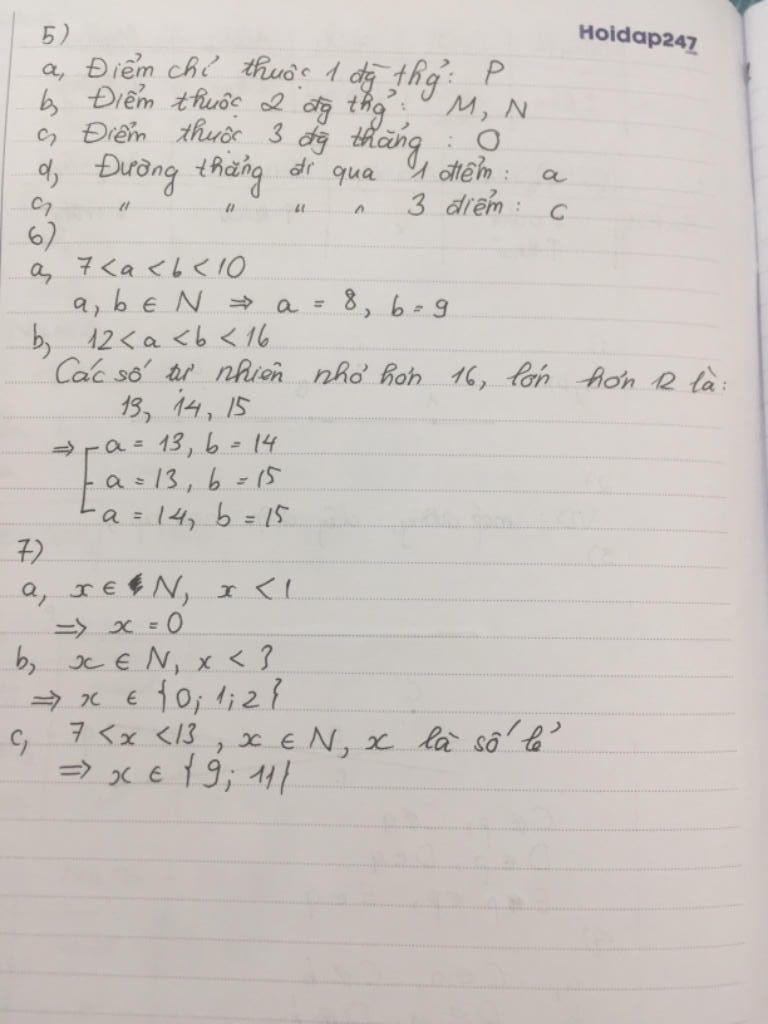 Hoidap247
5)
a, Điểm chỉ thuộc 1 đg thẳg: P
b, Điểm thuộc 2 đg thg̉: M, N
c, Điểm thuộc 3 đg thẳng: O
d, Đường thẳng đi qua 1 điểm: a
c, " " " " 3 điểm: c
6)
a, 7 < a < b < 10
a, b ∈ N ⇒ a = 8, b = 9
b, 12 < a < b < 16
Các số tự nhiên nhỏ hơn 16, lớn hơn 12 là:
13, 14, 15
⇒ [ a = 13, b = 14
a = 13, b = 15
a = 14, b = 15
7)
a, x ∈ N, x < 1
⇒ x = 0
b, x ∈ N, x < 3
⇒ x ∈ {0; 1; 2}
c, 7 < x < 13, x ∈ N, x là số lẻ
⇒ x ∈ {9; 11}